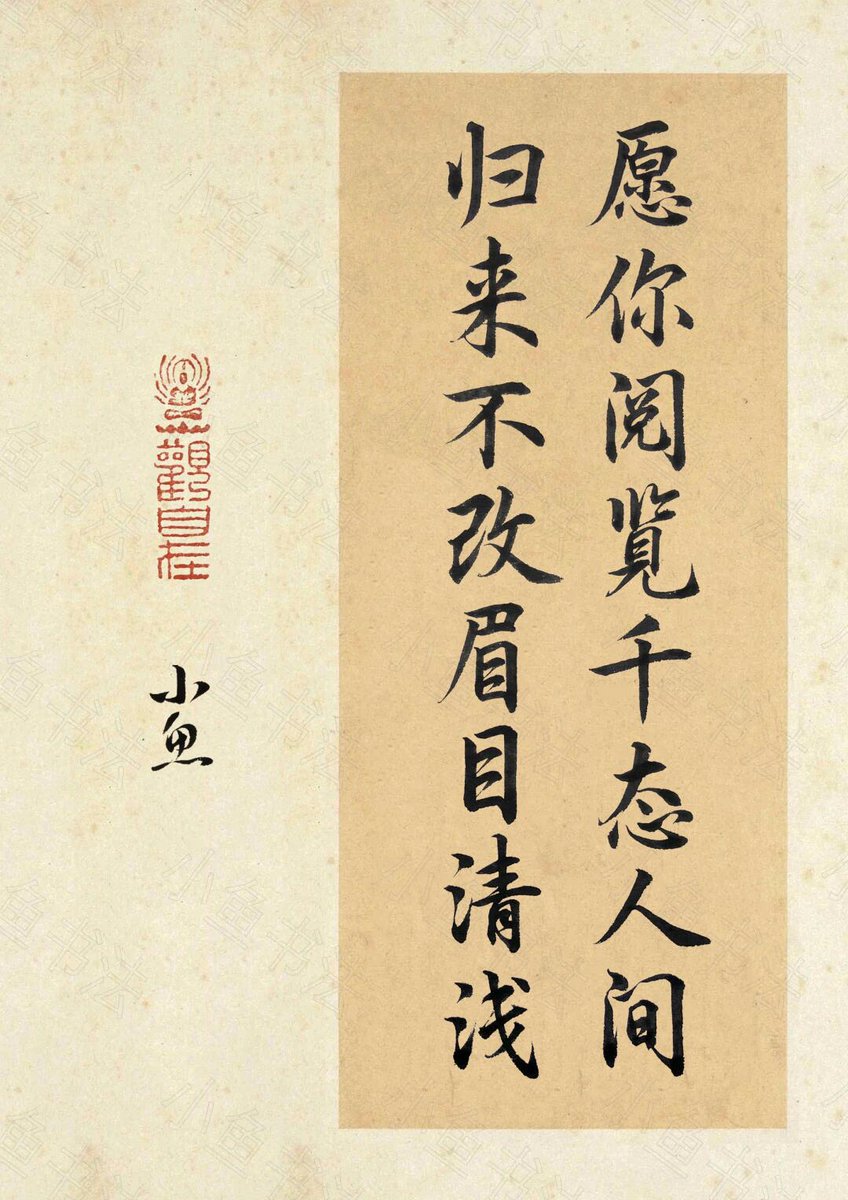 愿你阅览千态人间
归来不改眉目清浅
觀自在
小鱼
小鱼书法